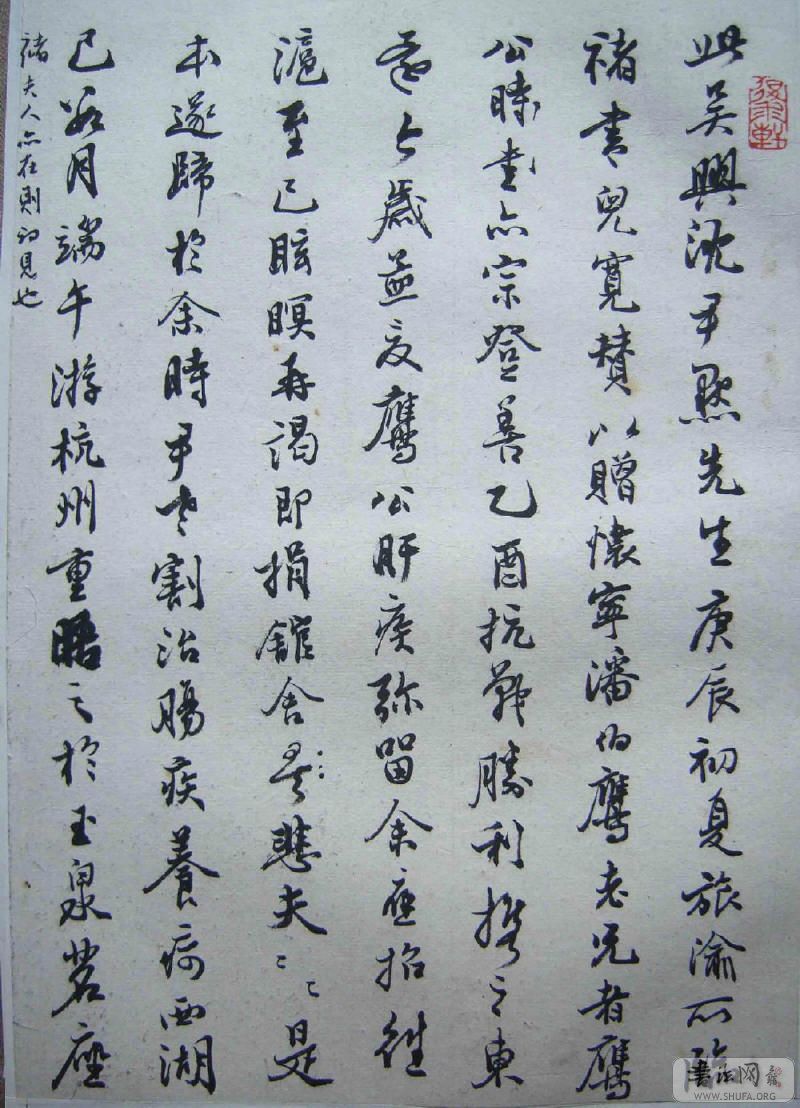 此吳興沈尹默先生庚辰初夏旅渝所臨
褚書兒寬贊以贈懷寧潘伯鷹老兄者鷹
公時書亦宗登善乙酉抗戰勝利攜之東
還今歲益友鷹公肝疾弥留余應招徃
滬至已眩瞑再謁即捐館舍矣悲夫〻〻是
本遂歸於余時尹老割治腸疾養疴西湖
已月端午游杭州重晤之於玉泉茗座
褚夫人亦在則初見也
書法网
WWW.SHUFA.ORG